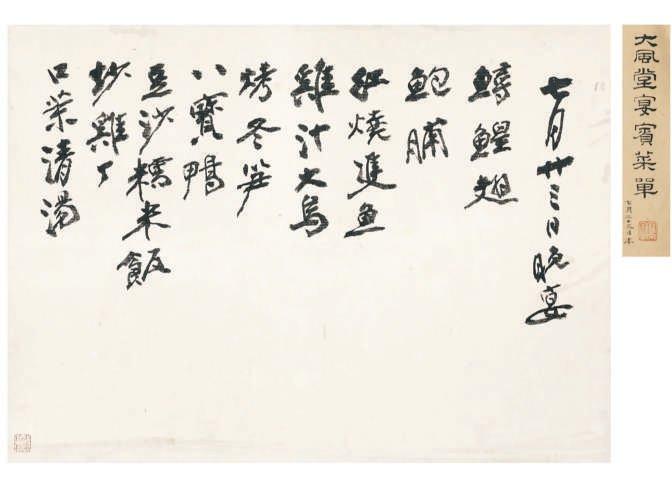 大風堂宴賓菜單
七月廿三日晚宴
鱘鰉翅
鮑脯
紅燒進魚
雞汁大烏
烤冬笋
八寶鴨
豆沙糯米飯
炒雞丁
口菜清湯